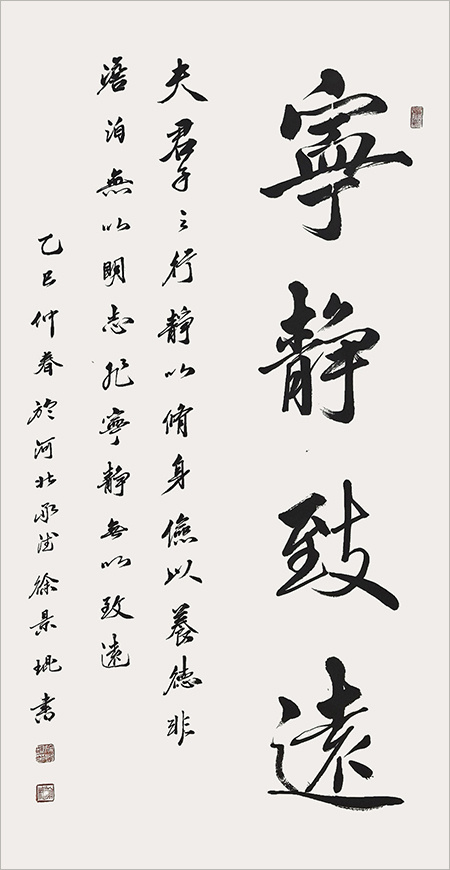 寧静致遠
夫君子之行静以脩身儉以養德非
澹泊無以明志非寧静無以致遠
乙巳仲春於河北承德徐景琨書